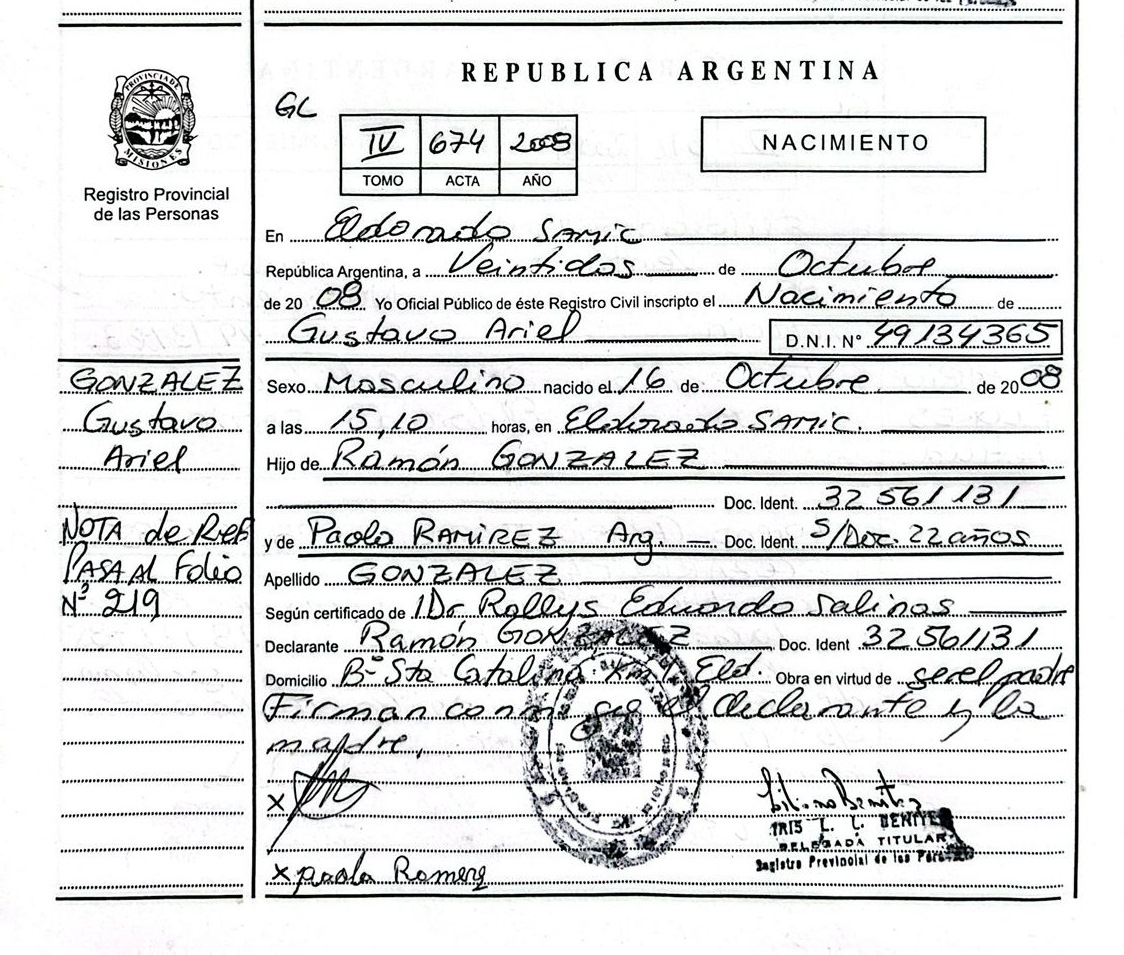 PROVINCIA DE
MISIONES
Registro Provincial
de las Personas
REPUBLICA ARGENTINA
GL
IV 674 2008
TOMO ACTA AÑO
NACIMIENTO
En Eldorado SAMIC
República Argentina, a Veintidos de Octubre
de 2008 Yo Oficial Público de éste Registro Civil inscripto el Nacimiento de
Gustavo Ariel D.N.I. N° 49134365
GONZALEZ
Gustavo
Ariel
NOTA de Ref
PASA AL Folio
Nº 219
Sexo Masculino nacido el 16 de Octubre de 2008
a las 15,10 horas, en Eldorado SAMIC.
Hijo de Ramón GONZALEZ
Doc. Ident. 32 561 131
y de Paola RAMIREZ Arg. Doc. Ident. S/Doc. 22 años
Apellido GONZALEZ
Según certificado de Dr Rollys Eduardo Salinas
Declarante Ramón GONZALEZ Doc. Ident 32561131
Domicilio Bº Sta Catalina Eld. Obra en virtud de ser el padre
Firman conmigo el declarante y la
madre,
X
X paola Romerez
IRIS L. C. BENITEZ
DELEGADA TITULAR
Registro Provincial de las Personas